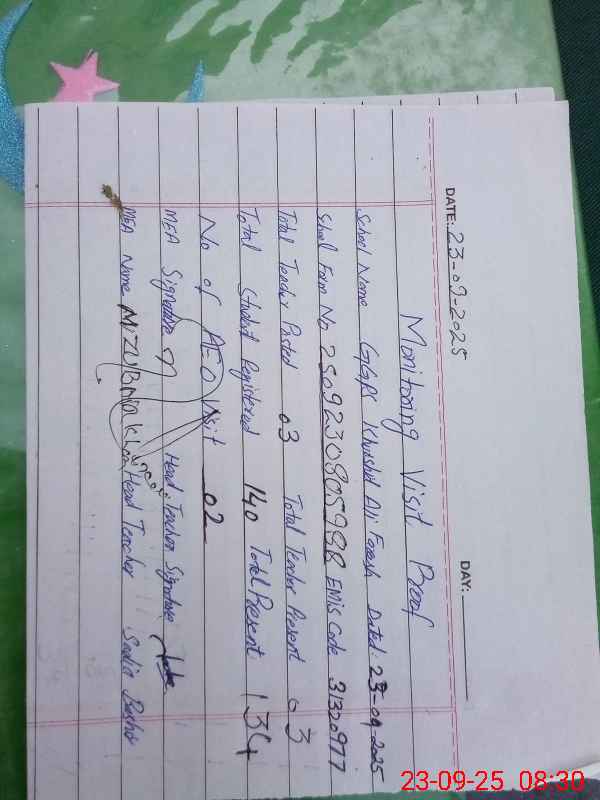 DATE: 23-09-2025 DAY:
Monitoring Visit Proof
School Name GGPS Khushal Ali Dated: 23-09-2025
School Form No 250923080599 EMIS Code 31320977
Total Teacher Posted 03 Total Teacher Present 03
Total Student Registered 140 Total Present 134
No of AEO Visit 02
MEA Signature Head Teacher Signature
MEA Name Khan Head Teacher Sadia Bashir
23-09-25 08:30